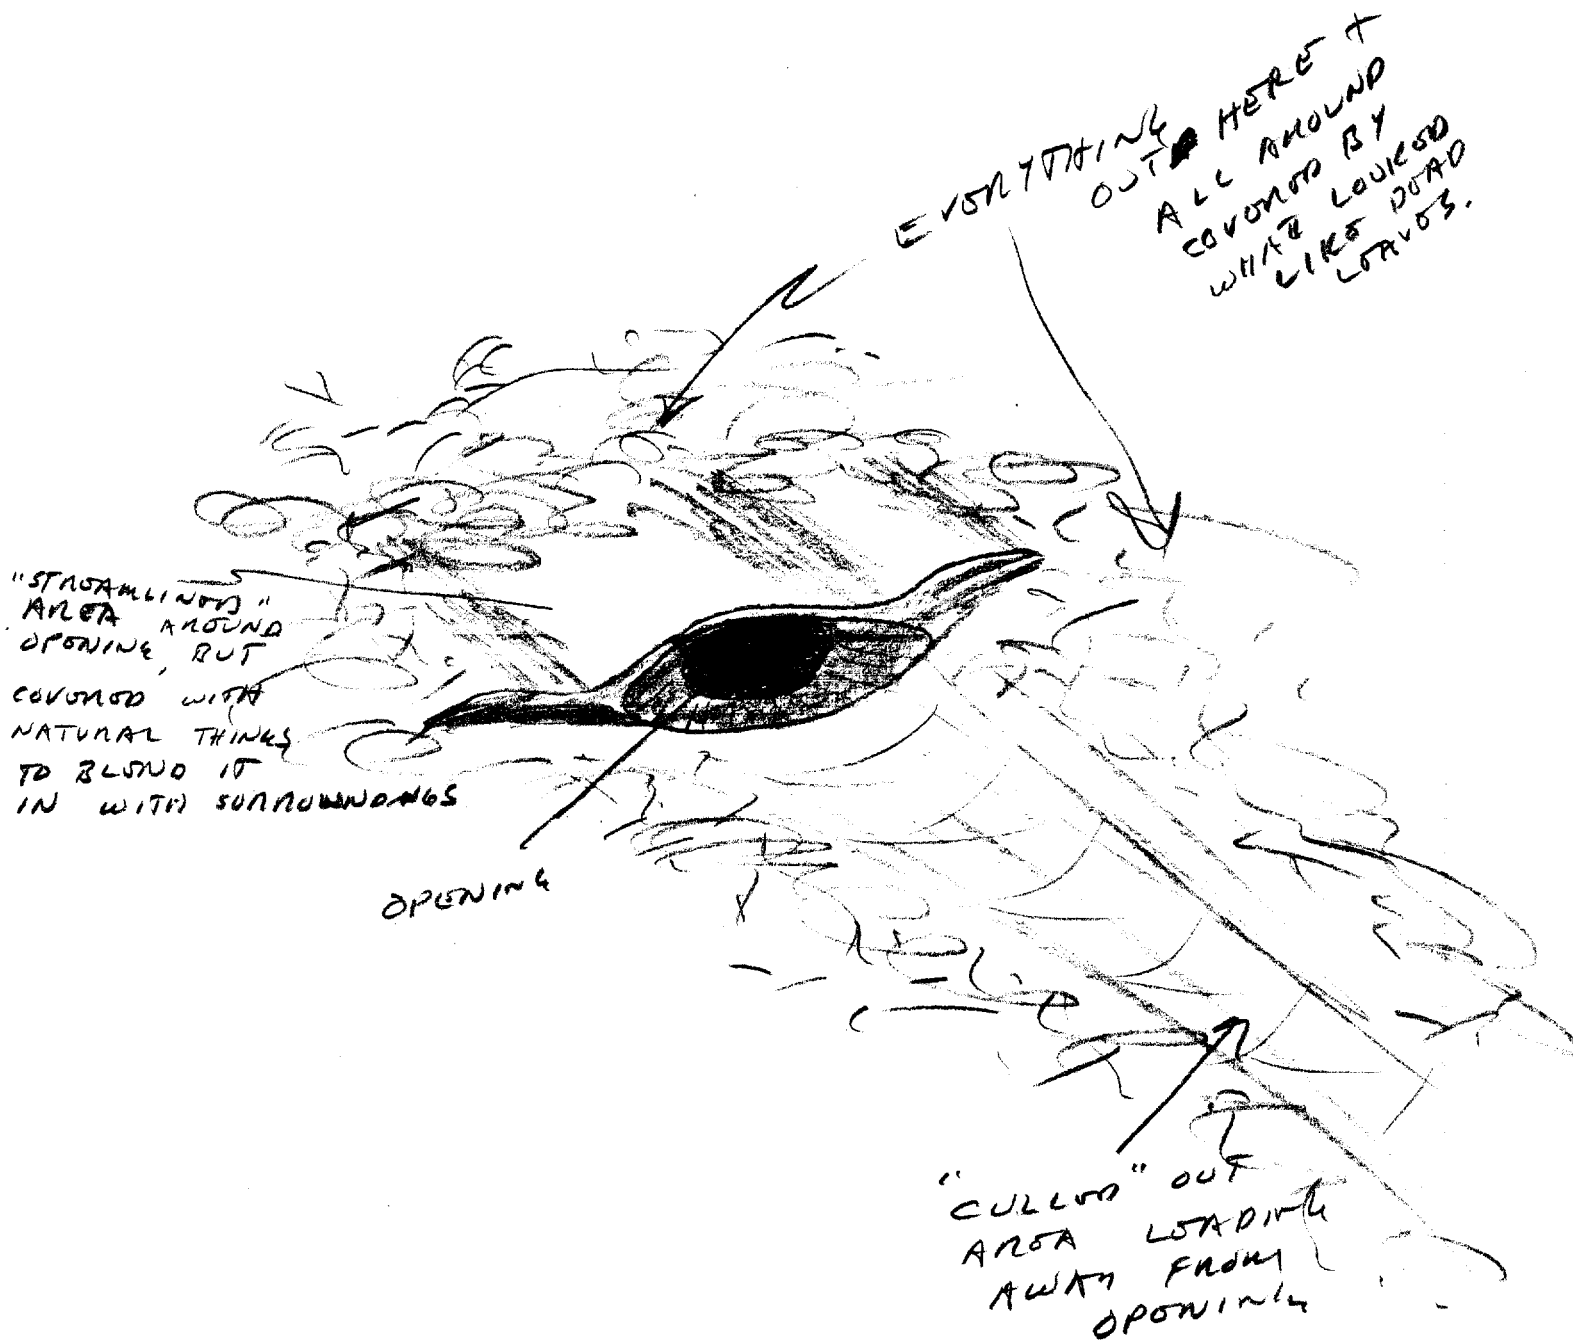 EVERYTHING
OUT HERE +
ALL AROUND
COVERED BY
WHAT LOOKED
LIKE DEAD
LEAVES.
"STREAMLINED"
AREA AROUND
OPENING, BUT
COVERED WITH
NATURAL THINGS
TO BLEND IT
IN WITH SURROUNDINGS
OPENING
"CULLED" OUT
AREA LEADING
AWAY FROM
OPENING